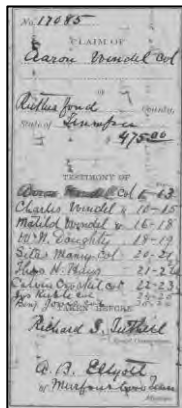 No. 17085
CLAIM OF
Aaron Wendel Col
of
Rutherford County,
State of Tennessee
$475.00
TESTIMONY OF
Aaron Wendel Col 1-13
Charles Wendel " 10-15
Matild Wendel " 16-18
W. H. Doughty 18-19
Silas Manny Col 20-21
Thos H. 21-2
Calvin Col 22-23
24-25
Benj
TAKEN BEFORE
Richard S.
Special Commissioner
A. B. Elliott
of Murfreesboro Tenn
Attorney